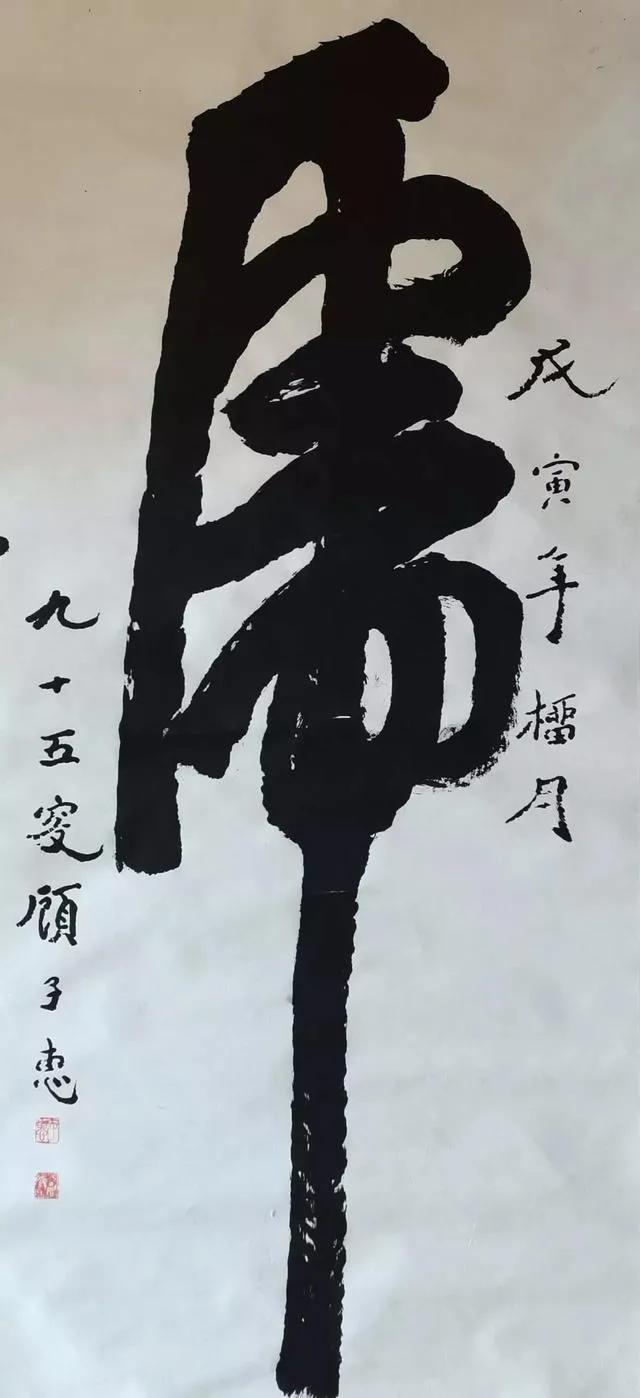 虎
戊寅年榴月
九十五叟顧子惠